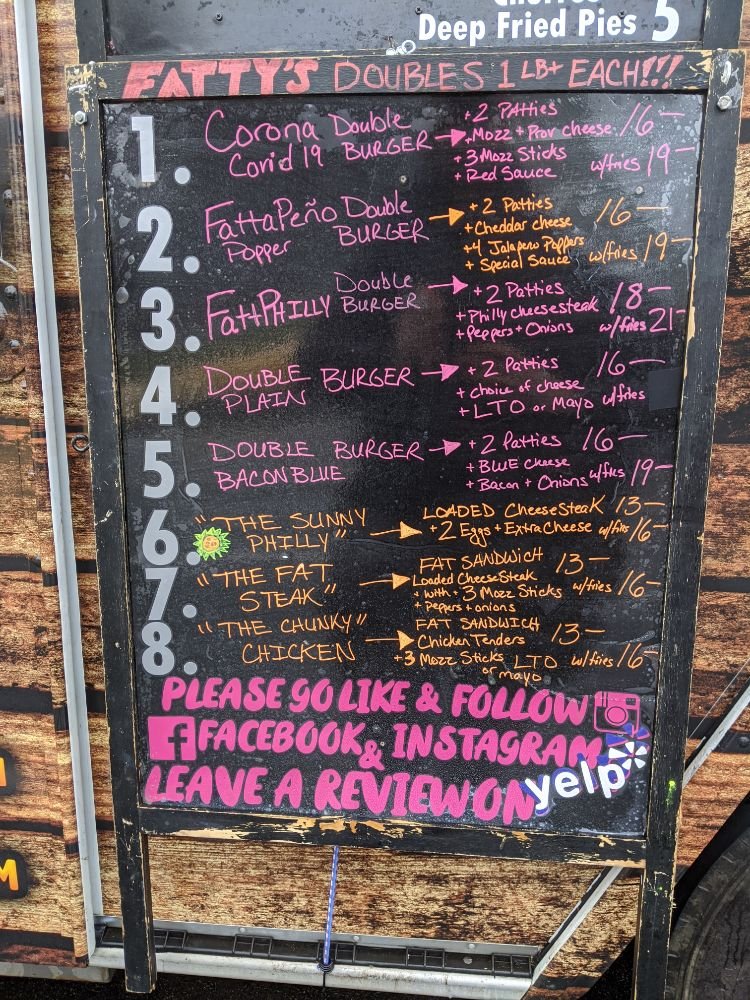 Churros
Deep Fried Pies 5
FATTY'S DOUBLES 1 LB+ EACH!!!
1. Corona Double + 2 Patties 16-
Covid 19 BURGER + Mozz + Prov cheese
+ 3 Mozz Sticks w/fries 19-
+ Red Sauce
2. FattaPeño Double + 2 Patties 16-
Popper BURGER + Cheddar cheese
+4 Jalapeno Poppers w/fries 19-
+ Special Sauce
3. FattPHILLY Double + 2 Patties 18-
BURGER + Philly cheesesteak
+ Peppers + Onions w/fries 21-
4. DOUBLE BURGER + 2 Patties 16-
PLAIN + choice of cheese
+ LTO or Mayo w/fries
5. DOUBLE BURGER + 2 Patties 16-
BACON BLUE + BLUE cheese
+ Bacon + Onions w/fries 19-
6. "THE SUNNY LOADED CheeseSteak 13-
PHILLY" + 2 Eggs + Extra Cheese w/fries 16-
7. "THE FAT FAT SANDWICH 13-
STEAK" Loaded CheeseSteak
+ with + 3 Mozz Sticks w/fries 16-
+ Peppers + onions
8. "THE CHUNKY" FAT SANDWICH 13-
CHICKEN Chicken Tenders
+3 Mozz Sticks LTO w/fries 16-
or mayo
PLEASE GO LIKE & FOLLOW
f FACEBOOK & INSTAGRAM
LEAVE A REVIEW ON yelp
M